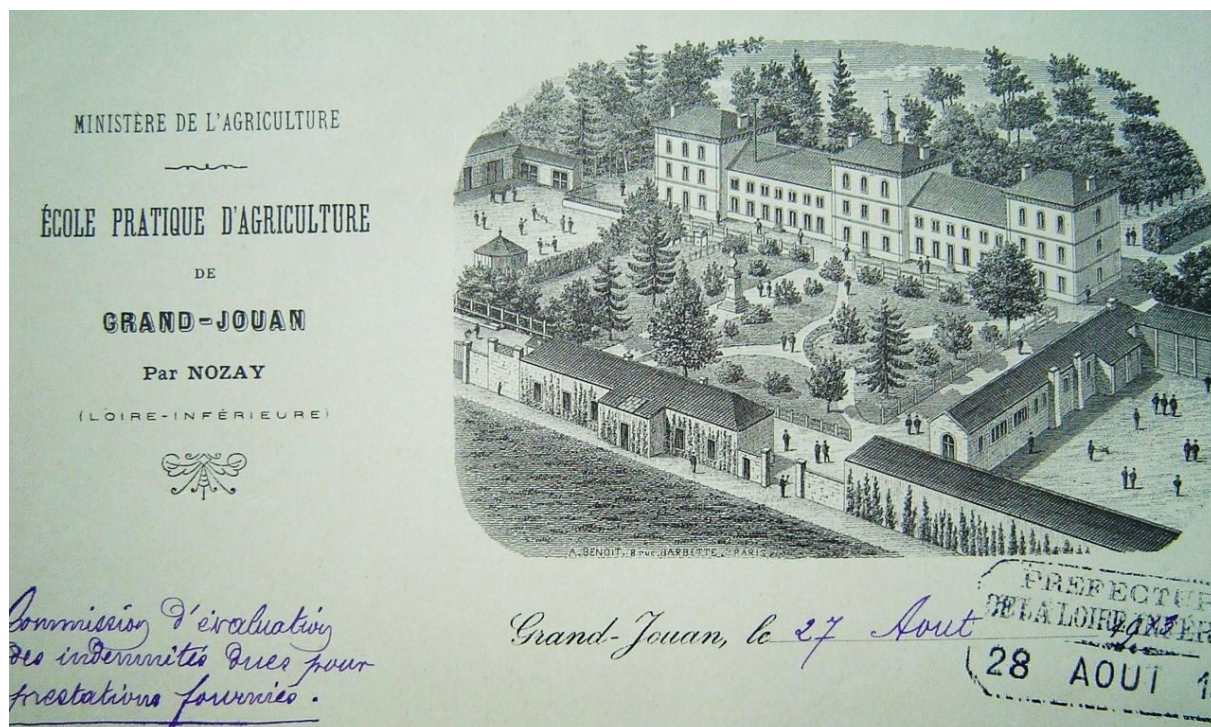 MINISTÈRE DE L'AGRICULTURE
ÉCOLE PRATIQUE D'AGRICULTURE
DE
GRAND-JOUAN
Par NOZAY
(LOIRE-INFÉRIEURE)
A. BENOIT. 8 rue BARBETTE. PARIS
Commission d'évaluation
des indemnités dues pour
prestations fournies.
Grand-Jouan, le 27 Aout
PREFECTU
DE LA LOIRE
28 AOUT 1